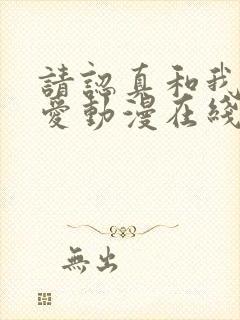 請認真和我
愛動漫在綫
無出